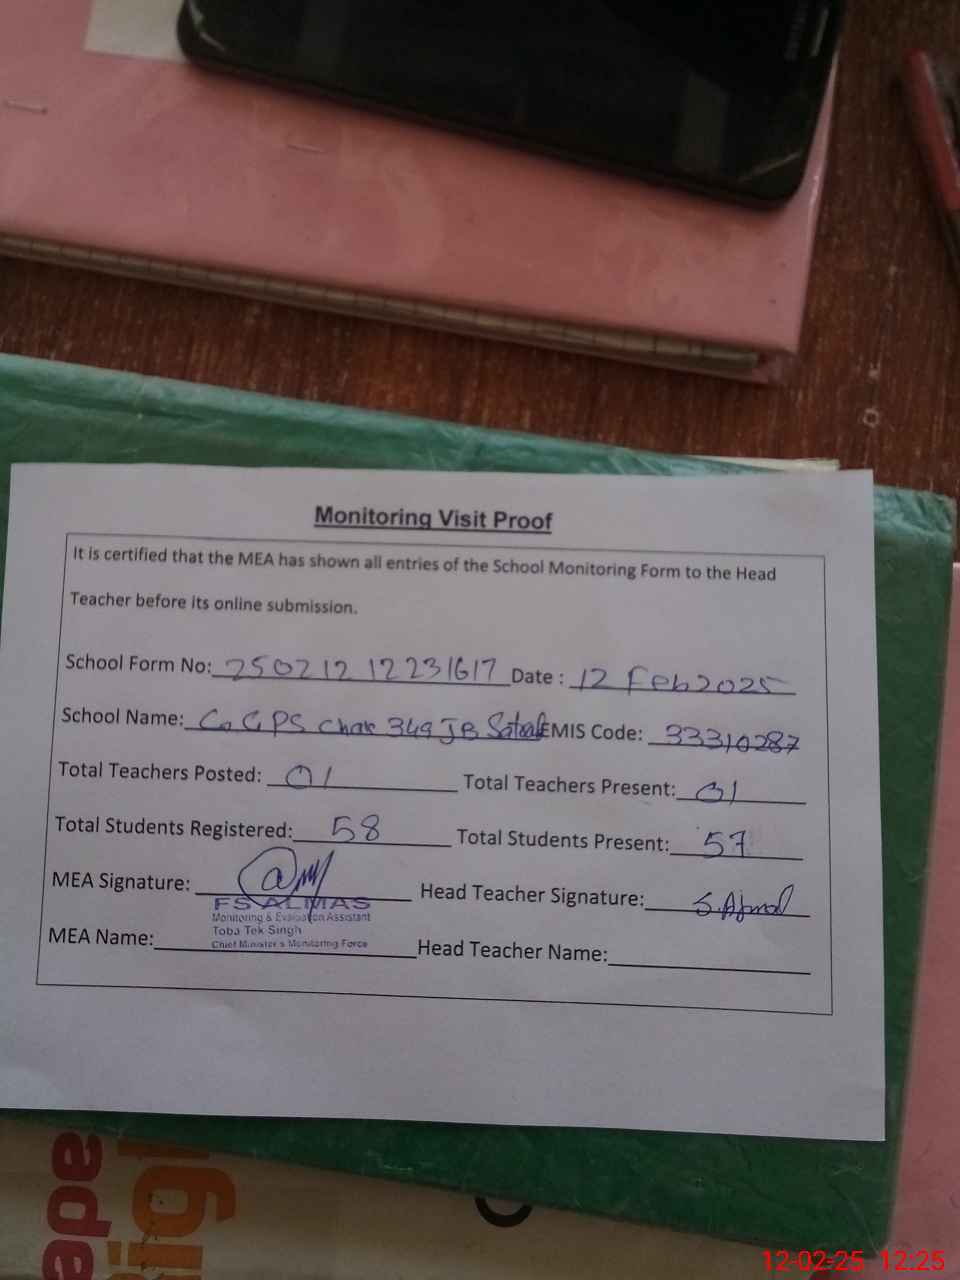 Monitoring Visit Proof
It is certified that the MEA has shown all entries of the School Monitoring Form to the Head
Teacher before its online submission.
School Form No: 250212 12231617 Date : 12 Feb 2025
School Name: Co GPS Chak 349 JB EMIS Code: 33310287
Total Teachers Posted: 01 Total Teachers Present: 01
Total Students Registered: 58 Total Students Present: 57
MEA Signature: Head Teacher Signature: S.Ajmal
FS ALMAS
Monitoring & Evaluation Assistant
Toba Tek Singh
Chief Minister's Monitoring Force
MEA Name: Head Teacher Name:
ade
igh
12-02-25 12:25